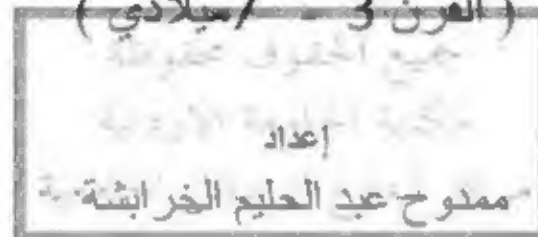 ( القرن 3 - 7 ميلادي )
جميع الحقوق محفوظة
مكتبة الجامعة الأردنية
إعداد
ممدوح عبد الحليم الخرابشة